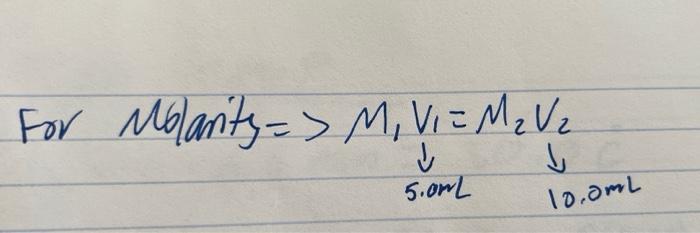 For Molarity => M₁V₁ = M₂V₂
↓ ↓
5.0mL 10.0mL